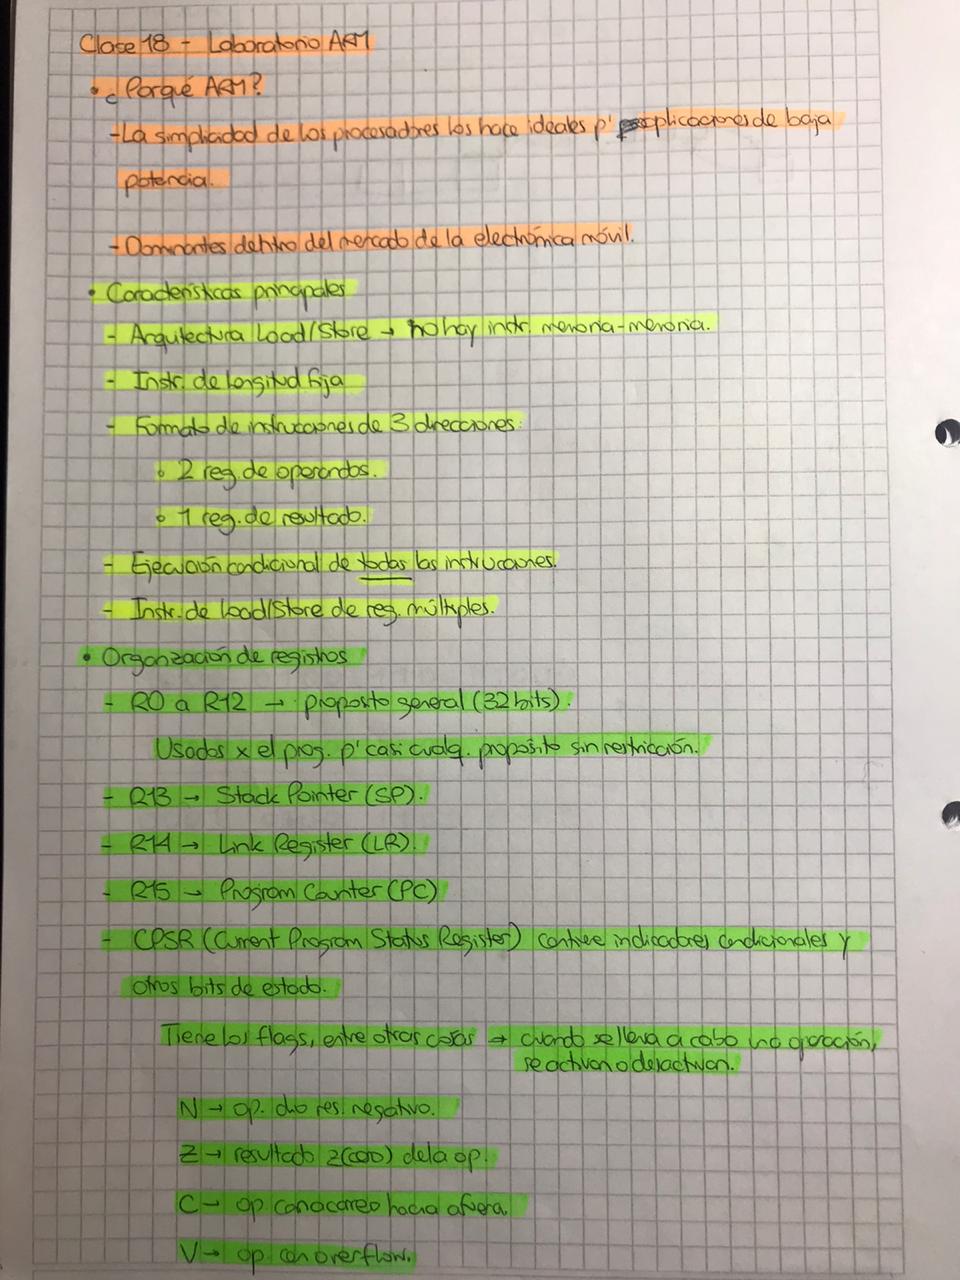 Clase 18 - Laboratorio ARM
• ¿Porqué ARM?
- La simplicidad de los procesadores los hace ideales p' aplicaciones de baja
potencia.
- Dominantes dentro del mercado de la electrónica móvil.
• Características principales
- Arquitectura Load/Store → no hay instr. memoria-memoria.
- Instr. de longitud fija
- Formato de instrucciones de 3 direcciones:
◦ 2 reg. de operandos.
◦ 1 reg. de resultado.
- Ejecución condicional de todas las instrucciones.
- Instr. de Load/Store de reg. múltiples.
• Organización de registros
- R0 a R12 → proposito general (32 bits).
Usados x el prog. p' casi cualq. propósito sin restricción.
- R13 → Stack Pointer (SP).
- R14 → Link Register (LR).
- R15 → Program Counter (PC)
- CPSR (Current Program Status Register) contiene indicadores condicionales y
otros bits de estado.
Tiene los flags, entre otras cosas → cuando se lleva a cabo una operación,
se activan o desactivan.
N → op. dio res. negativo.
Z → resultado z(cero) de la op.
C → op. con acarreo hacia afuera.
V → op. con overflow.